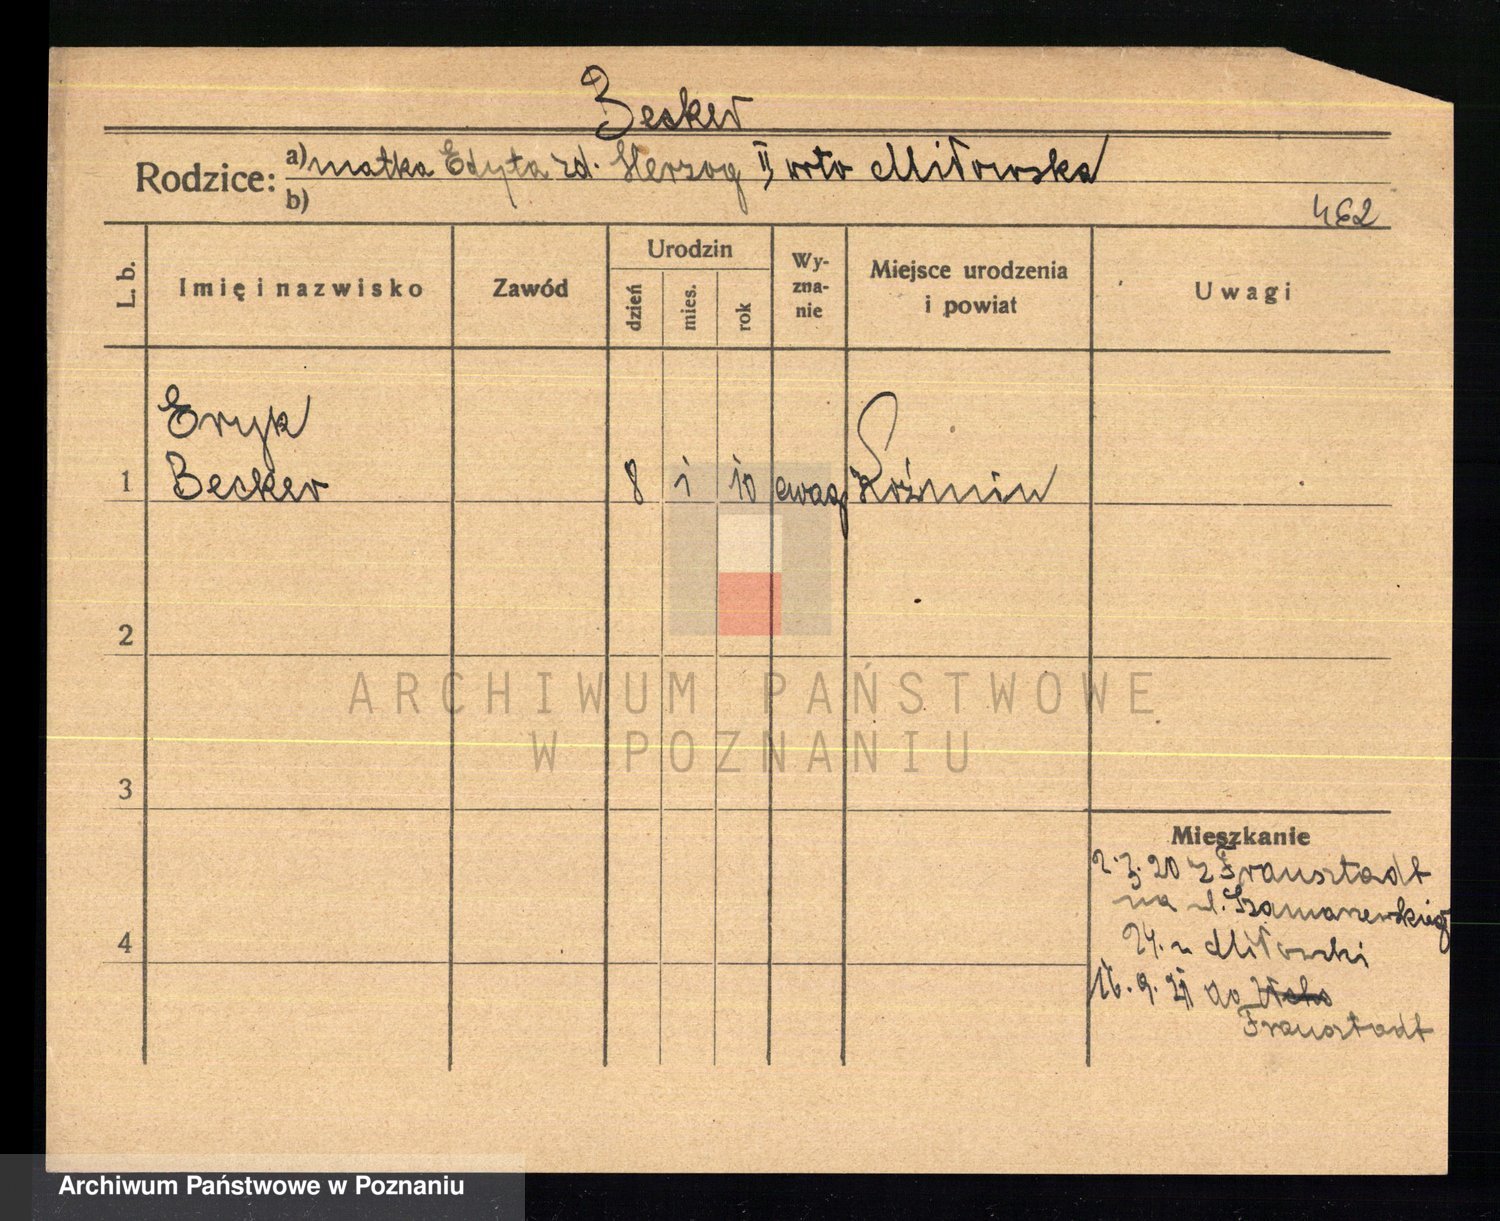 Becker
Rodzice: a) matka Edyta zd. Herzog II voto Miłowska
b)
462
L. b. Imię i nazwisko Zawód Urodzin dzień mies. rok Wyznanie Miejsce urodzenia i powiat Uwagi
Eryk
1 Becker 8 1 10 ewag Koźmin
2
ARCHIWUM PAŃSTWOWE
W POZNANIU
3
Mieszkanie
2.3.20 z Fraustadt
na ul. Szamarzewskiego
4
24. u Miłowski
16.9.21 do
Fraustadt
Archiwum Państwowe w Poznaniu